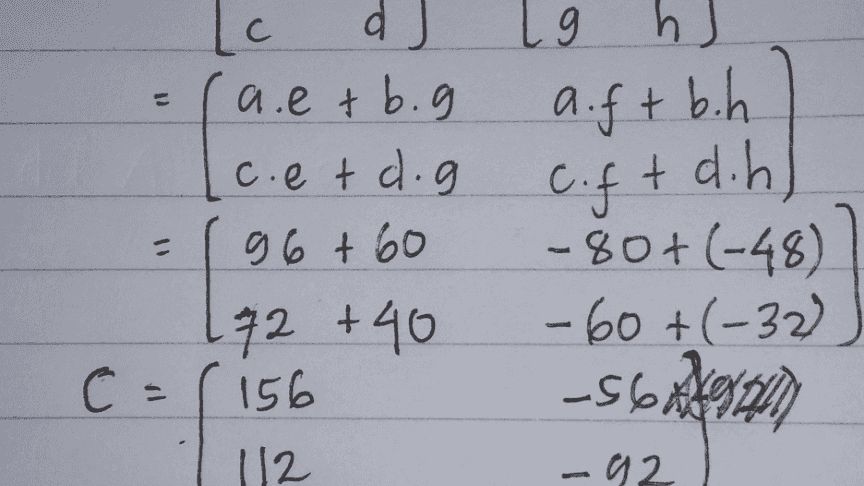 [c d] [g h]
= [a.e + b.g a.f + b.h
c.e + d.g c.f + d.h]
= [96 + 60 -80 + (-48)
72 + 40 -60 + (-32)]
C = [156 -56
112 -92]